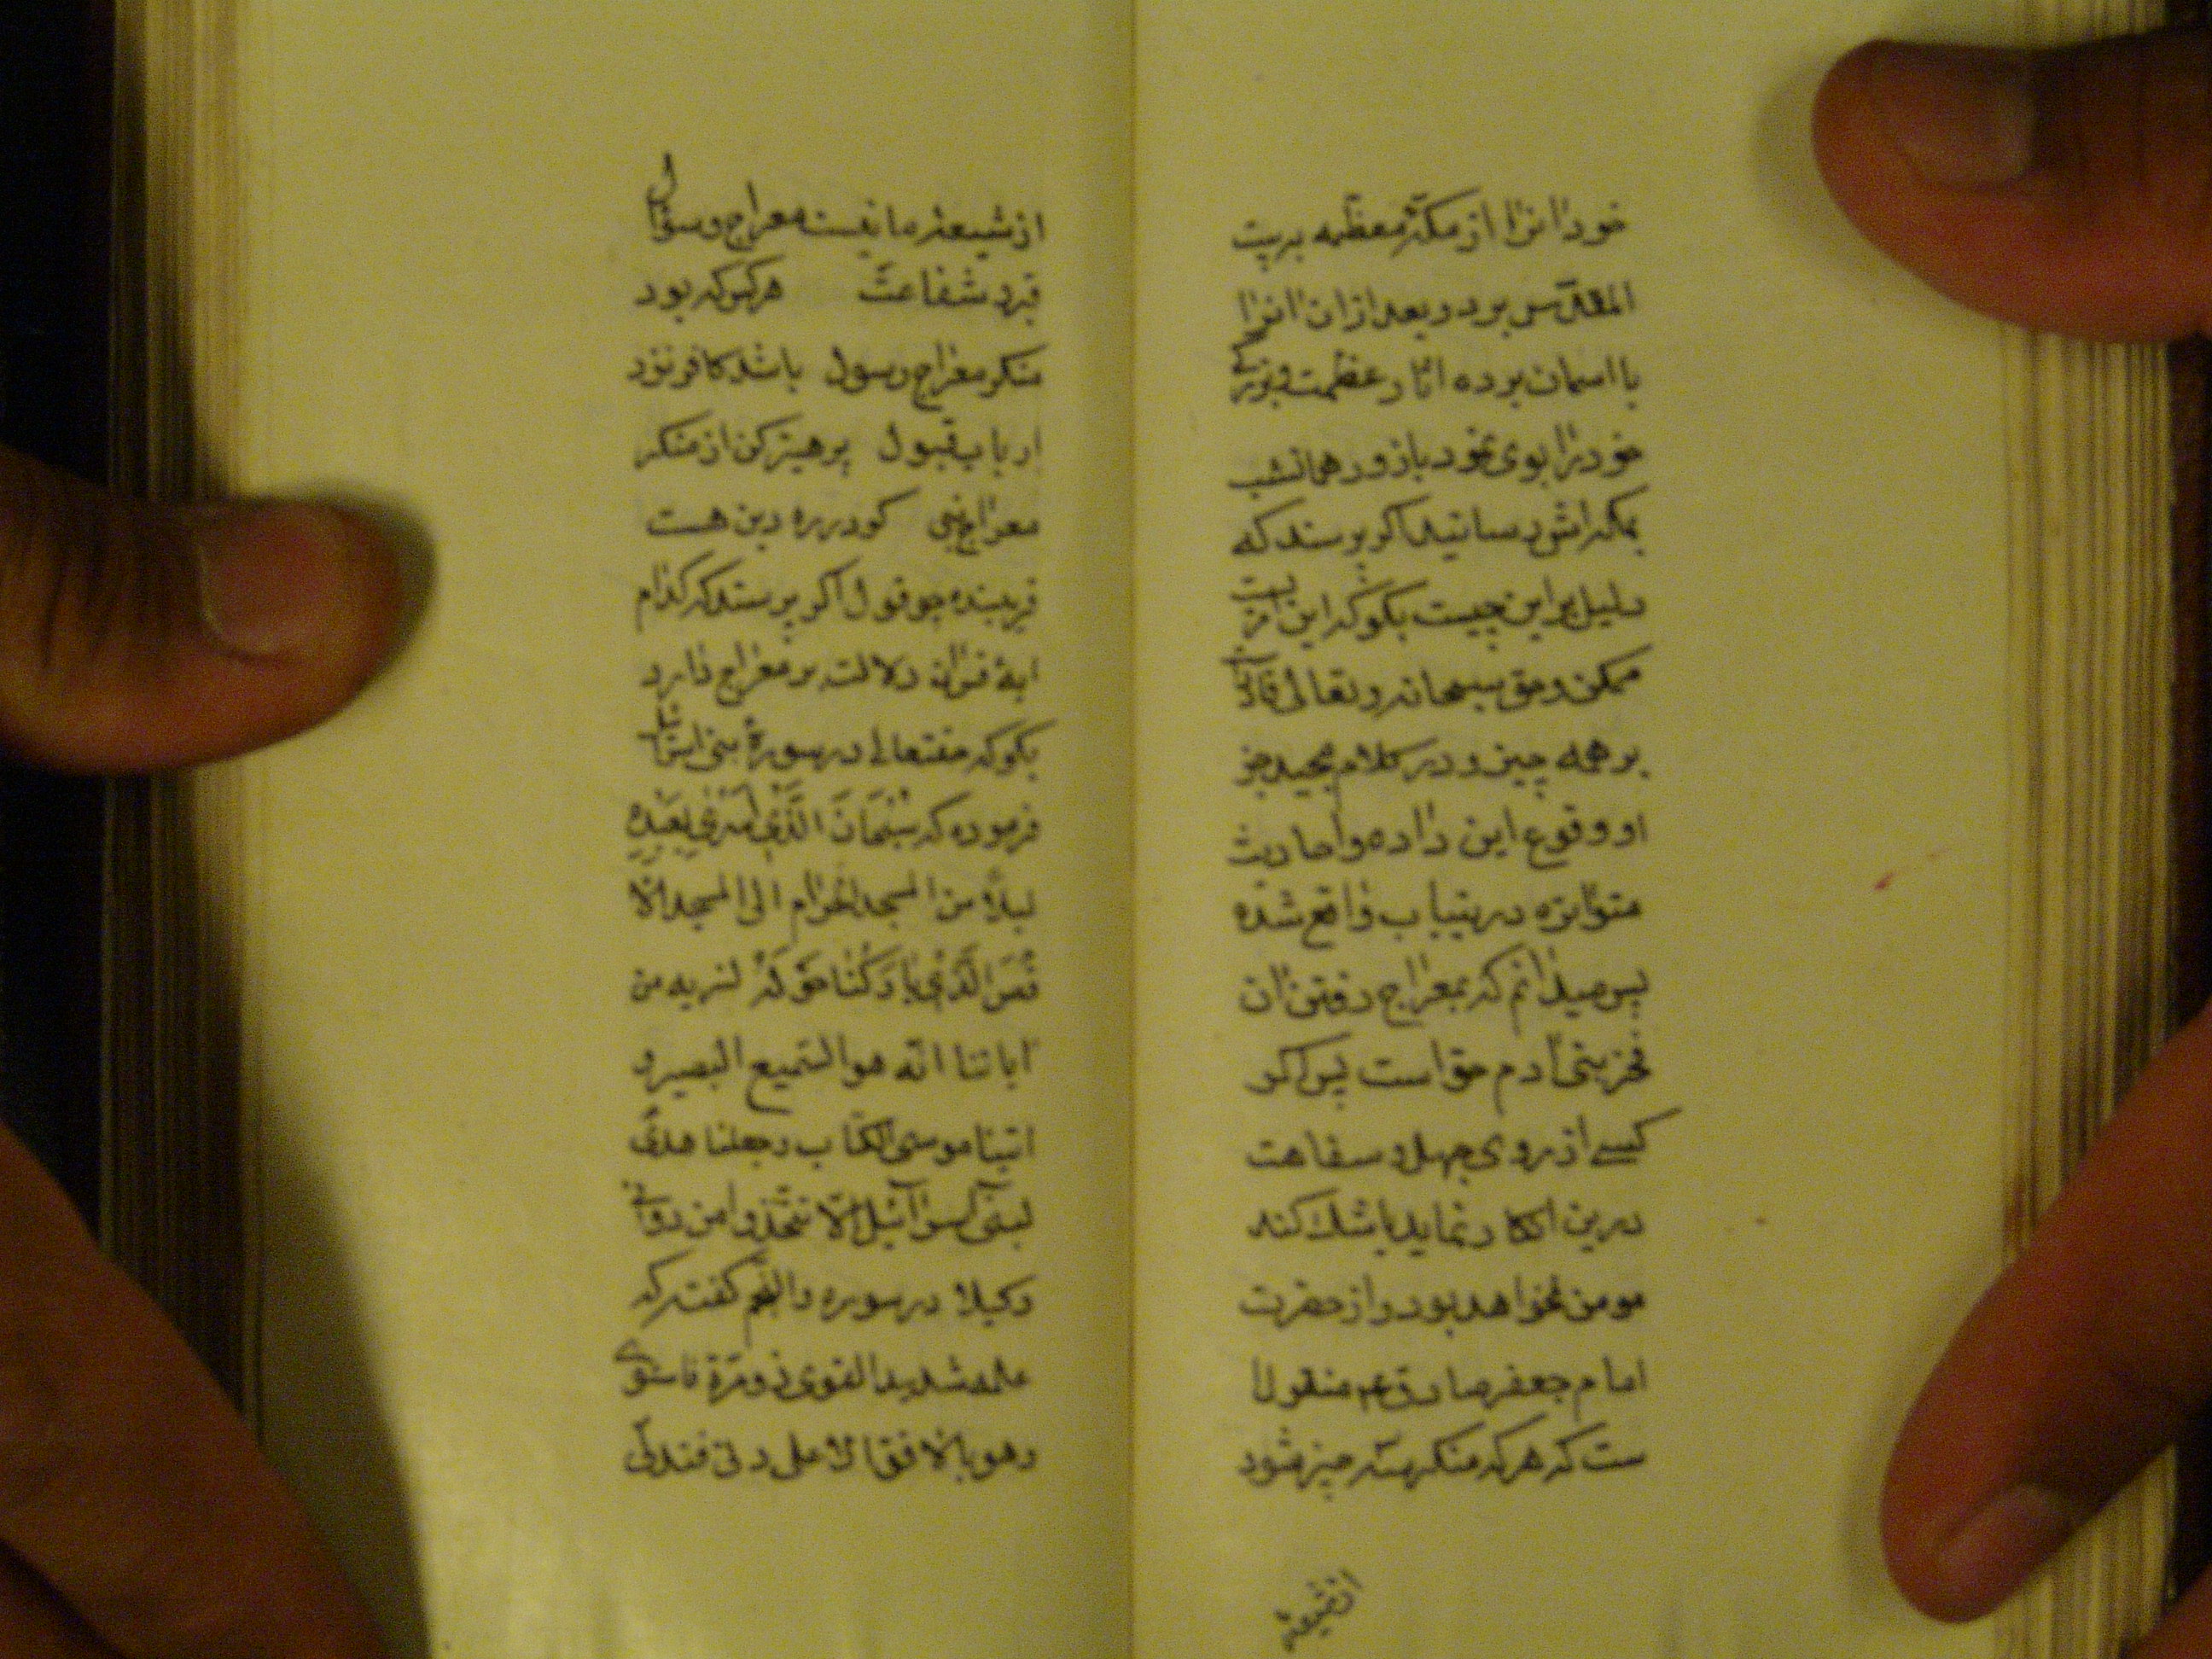 خود انرا از مکّه معظّمه به بیت
المقدّس برد و بعد از ان انرا
با اسمان برده اثار عظمت و بزرکی
خود را بوی نمود باز در همانشب
بمکه اش رسانید اکر پرسند که
دلیل بر این چیست بکو که این امریست
ممکن و حق سبحانه و تعالی قادر
بر همه چیز و در کلام مجید خبر
او وقوع این داده و احادیث
متواتره درینباب واقع شده
پس میدانم که بمعراج رفتن ان
فخر بنی آدم حق است پس اکر
کسی از روی جهل و سفاهت
درین انکار نماید یا شک کند
مومن نخواهد بود و از حضرت
امام جعفر صادق عم منقول ا
ست که هر که منکر سه چیز شود
از شیعه
از شیعه ما نیست معراج و سؤال
قبر و شفاعت هر کس که بود
منکر معراج رسول باشد کافر نزد
ارباب قبول پرهیز کن از منکر
معراج نبی کو در ره دین هست
فریبنده چو غول اکر پرسند که کدام
ایهٔ قران دلالت بر معراج دارد
بکو که حقتعالی در سورهٔ بنی اسرائیل
فرموده که سُبْحَانَ الَّذِی اَسْرٰی بِعَبْدِهِ
لیلاً من المسجد الحرام الی المسجد الا
قْصَی الَّذِی بَارَکْنَا حَوْلَهُ لنریه من
ایاتنا انّه هو السّمیع البصیر و
اتینا موسی الکتاب و جعلناه هدًی
لبنی اسرآئیل الّا تتّخذوا من دونی
وکیلا در سوره والنّجم کفته که
علمه شدید القوی ذو مرّة فاستوی
و هو بالافق الاعلی دنی فتدلّی